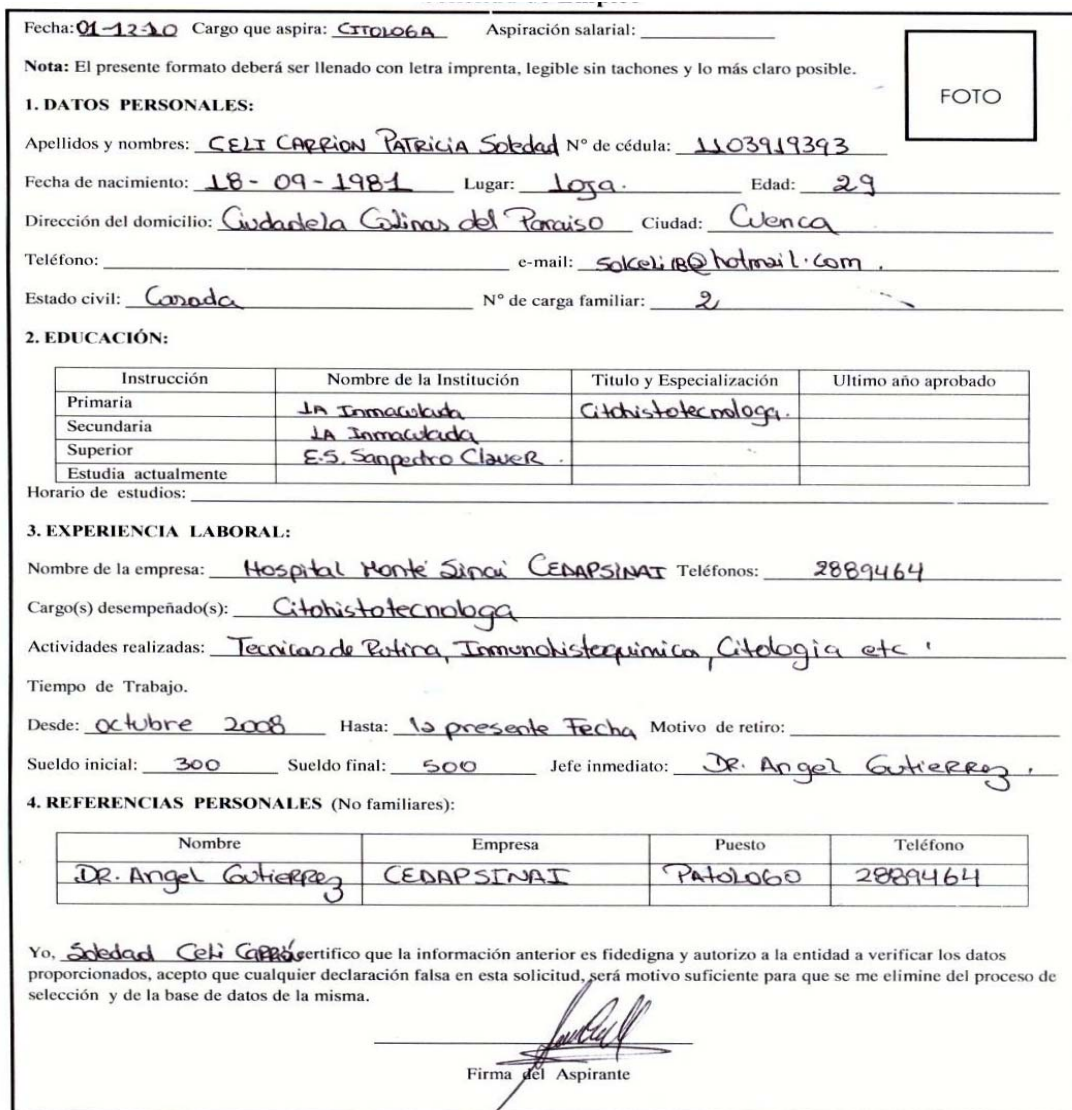 Fecha: 01-12-10 Cargo que aspira: CITOLOGA Aspiración salarial:
Nota: El presente formato deberá ser llenado con letra imprenta, legible sin tachones y lo más claro posible.
FOTO
1. DATOS PERSONALES:
Apellidos y nombres: CELI CARRION PATRICIA Soledad N° de cédula: 1103919393
Fecha de nacimiento: 18-09-1981 Lugar: Loja. Edad: 29
Dirección del domicilio: Ciudadela Colinas del Paraiso Ciudad: Cuenca
Teléfono: e-mail: solceli18@hotmail.com.
Estado civil: Casada N° de carga familiar: 2
2. EDUCACIÓN:
Instrucción Nombre de la Institución Titulo y Especialización Ultimo año aprobado
Primaria LA Inmaculada Citohistotecnologa.
Secundaria LA Inmaculada
Superior E.S. Sanpedro Claver.
Estudia actualmente
Horario de estudios:
3. EXPERIENCIA LABORAL:
Nombre de la empresa: Hospital Monte Sinai CEDAPSINAI Teléfonos: 2889464
Cargo(s) desempeñado(s): Citohistotecnologa
Actividades realizadas: Tecnicas de Rutina, Inmunohistoquimica, Citologia etc
Tiempo de Trabajo.
Desde: octubre 2008 Hasta: la presente Fecha Motivo de retiro:
Sueldo inicial: 300 Sueldo final: 500 Jefe inmediato: DR. Angel Gutierrez.
4. REFERENCIAS PERSONALES (No familiares):
Nombre Empresa Puesto Teléfono
DR. Angel Gutierrez CEDAPSINAI PATOLOGO 2889464
Yo, Soledad Celi Carrión certifico que la información anterior es fidedigna y autorizo a la entidad a verificar los datos
proporcionados, acepto que cualquier declaración falsa en esta solicitud, será motivo suficiente para que se me elimine del proceso de
selección y de la base de datos de la misma.
Firma del Aspirante